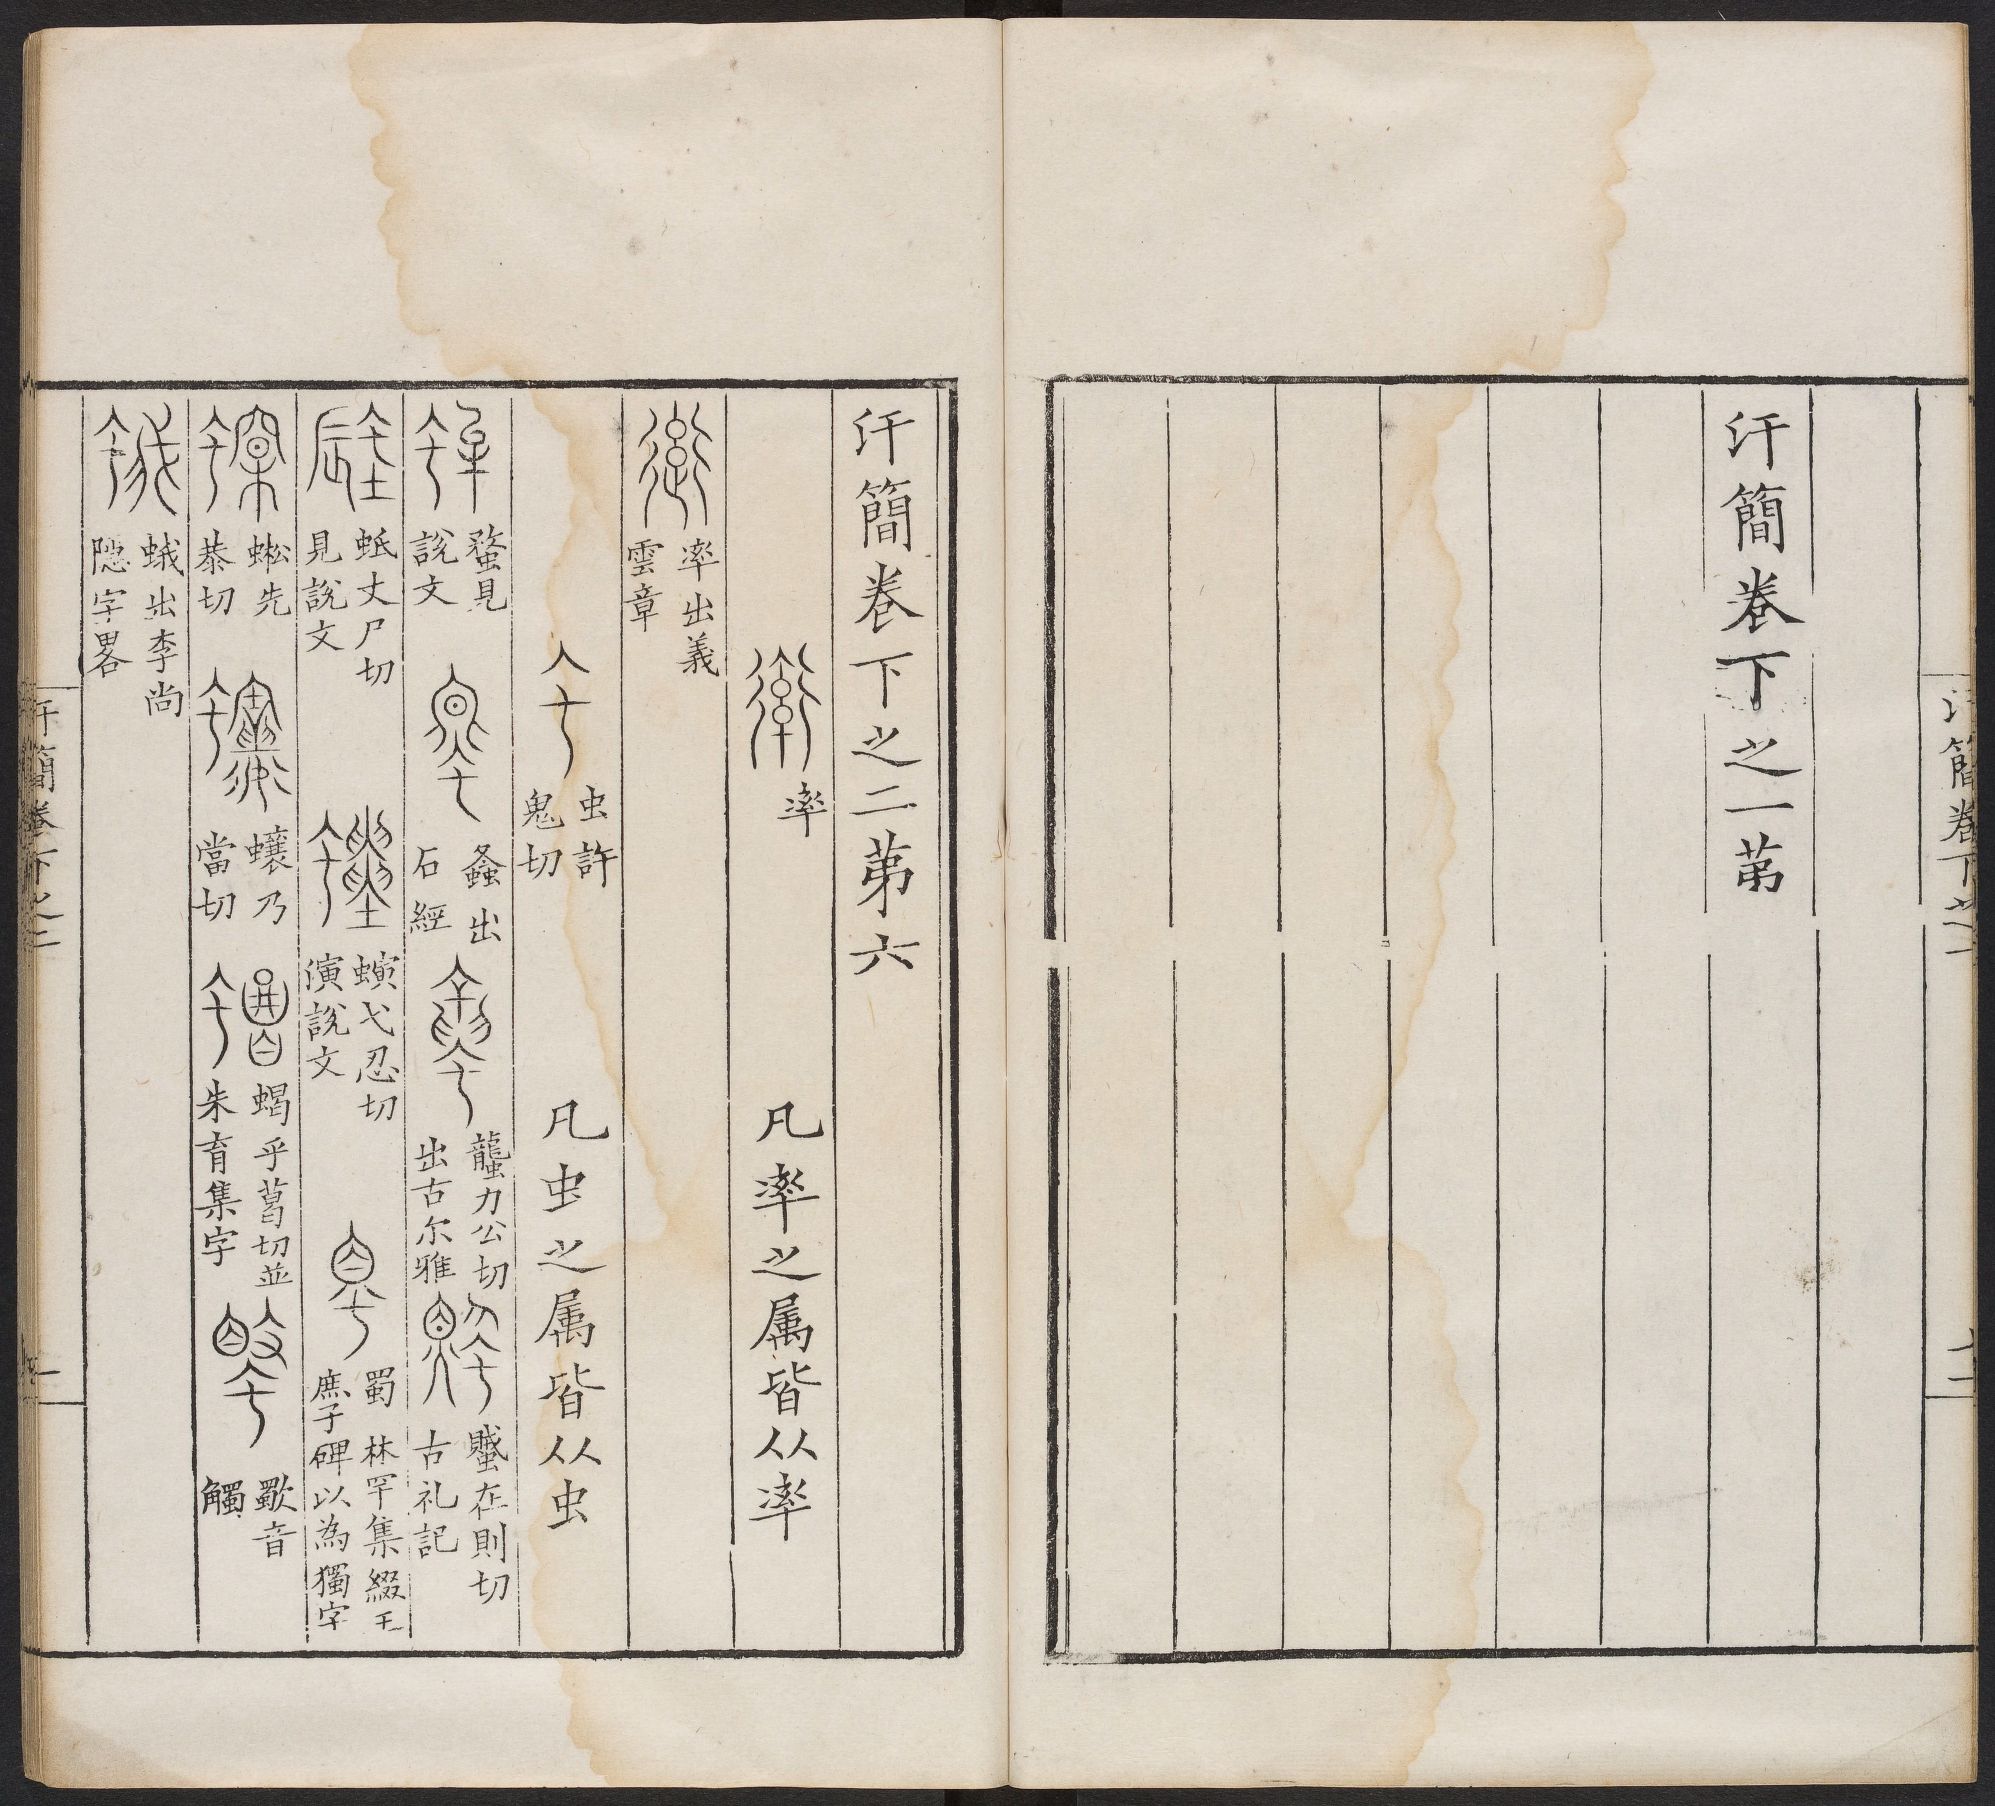 汗簡卷下之一第
汗簡卷下之一
汗簡卷下之二第六
率 凡率之屬皆从率
率出義雲章
虫許鬼切 凡虫之属皆从虫
蝥見說文 螽出石經 蠪力公切出古尔雅 蠈在則切古礼記
蚳丈尸切見說文 螾弋忍切演說文 蜀林罕集綴王庶子碑以為獨字
蜙先恭切 蠰乃當切 蝎乎葛切並朱育集字 歜音觸
蛾出李尚隐字畧
汗簡卷下之二 一